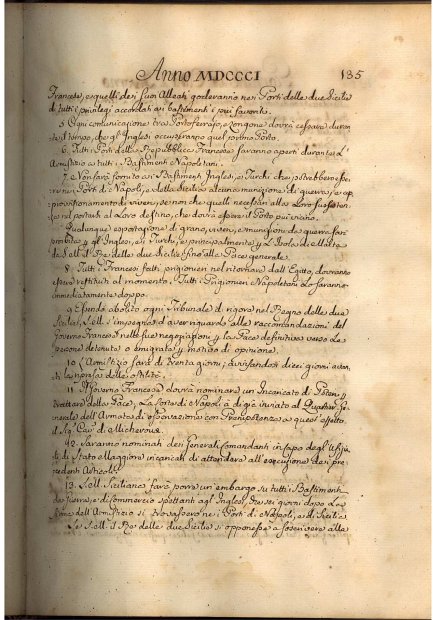 Anno MDCCCI 185
Francese, e quelli dei suoi Alleati goderanno nei Porti delle due Sicilie
di tutti i privilegi accordati ai bastimenti i più favoriti.
5. Ogni comunicazione tra Portoferrajo, e Longone dovrà cessare duran-
te il tempo, che gl'Inglesi occuperanno quel primo Porto.
6. Tutti i Porti della Repubblica Francese saranno aperti durante l'
Armistizio a tutti i Bastimenti Napoletani.
7. Non sarà fornito ai Bastimenti Inglesi, e Turchi che potrebbero esse-
re nei Porti di Napoli, e della Sicilia alcuna munizione di guerra, e ap-
provvisionamento di viveri, se non che quelli necessari alla loro sussisten-
za nel portarsi al Loro destino, che dovrà essere il Porto più vicino.
Qualunque esportazione di grano, viveri, e munizioni da guerra saran
proibite p. gl'Inglesi, e i Turchi, e principalmente p. l'Isola di Malta
da S. M. il Re delle due Sicilie fino alla Pace generale.
8. Tutti i Francesi fatti prigionieri nel ritornare dall'Egitto, dovranno
essere restituiti al momento. Tutti i Prigionieri Napoletani lo saranno
immediatamente dopo.
9. Essendo abolito ogni Tribunale di rigore nel Regno delle due
Sicilie, S. M. s'impegna d'aver riguardo alle raccomandazioni del
Governo Francese nelle sue negoziazioni p. la Pace definitiva verso le
persone detenute o emigrate p. motivo di opinione.
10. L'Armistizio sarà di trenta giorni; avvisandosi dieci giorni avan-
ti la ripresa delle ostilità.
11. Il Governo Francese dovrà nominare un Incaricato di Poteri p.
trattare della Pace; La Corte di Napoli à di già inviato al Quartier Ge-
nerale dell'Armata di osservazione con Plenipotenza a quest'effetto,
il Sig. Cav. di Micheroux.
12. Saranno nominati dei Generali Comandanti in Capo degli Ufizia-
li di Stato Maggiore incaricati di attendere all'esecuzione dei pre-
cedenti Articoli.
13. S. M. Siciliana farà porre un embargo su tutti i Bastimenti
da guerra, e di commercio spettanti agl'Inglesi, che sei giorni dopo la
firma dell'Armistizio si trovassero nei Porti di Napoli, e di Sicilia.
Se S. M. il Re delle due Sicilie si opponesse a soscrivere alle